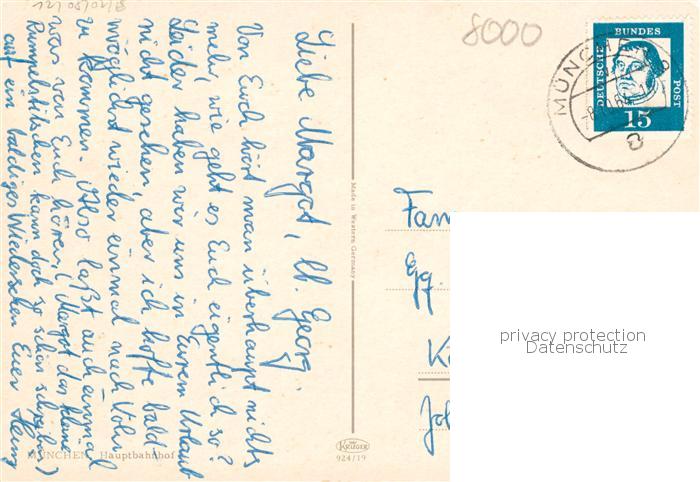 12/05/01/18
8000
DEUTSCHE
BUNDES
POST
15
MÜNCHEN
8
Liebe Margot, lb. Georg,
Von Euch hört man überhaupt nichts
mehr, wie geht es Euch eigentlich so?
Leider haben wir uns in Eurem Urlaub
nicht gesehen, aber ich hoffe bald
möglichst wieder einmal nach Köln
zu kommen. Also laßt auch einmal
was von Euch hören, (Margot das kleine
Rumpelstilzchen kann doch so schön schreiben)
auf ein baldiges Wiedersehen Euer Heinz
Made in Western Germany
KRÜGER
924/19
MÜNCHEN Hauptbahnhof
Fam
privacy protection
Datenschutz